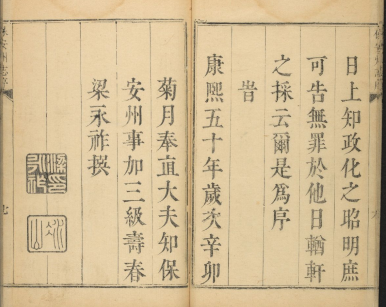 日上知政化之昭明庶
可告無罪於他日輶軒
之採云爾是爲序
旹
康熙五十年歲次辛卯
菊月奉直大夫知保
安州事加三級壽春
梁永祚撰
七